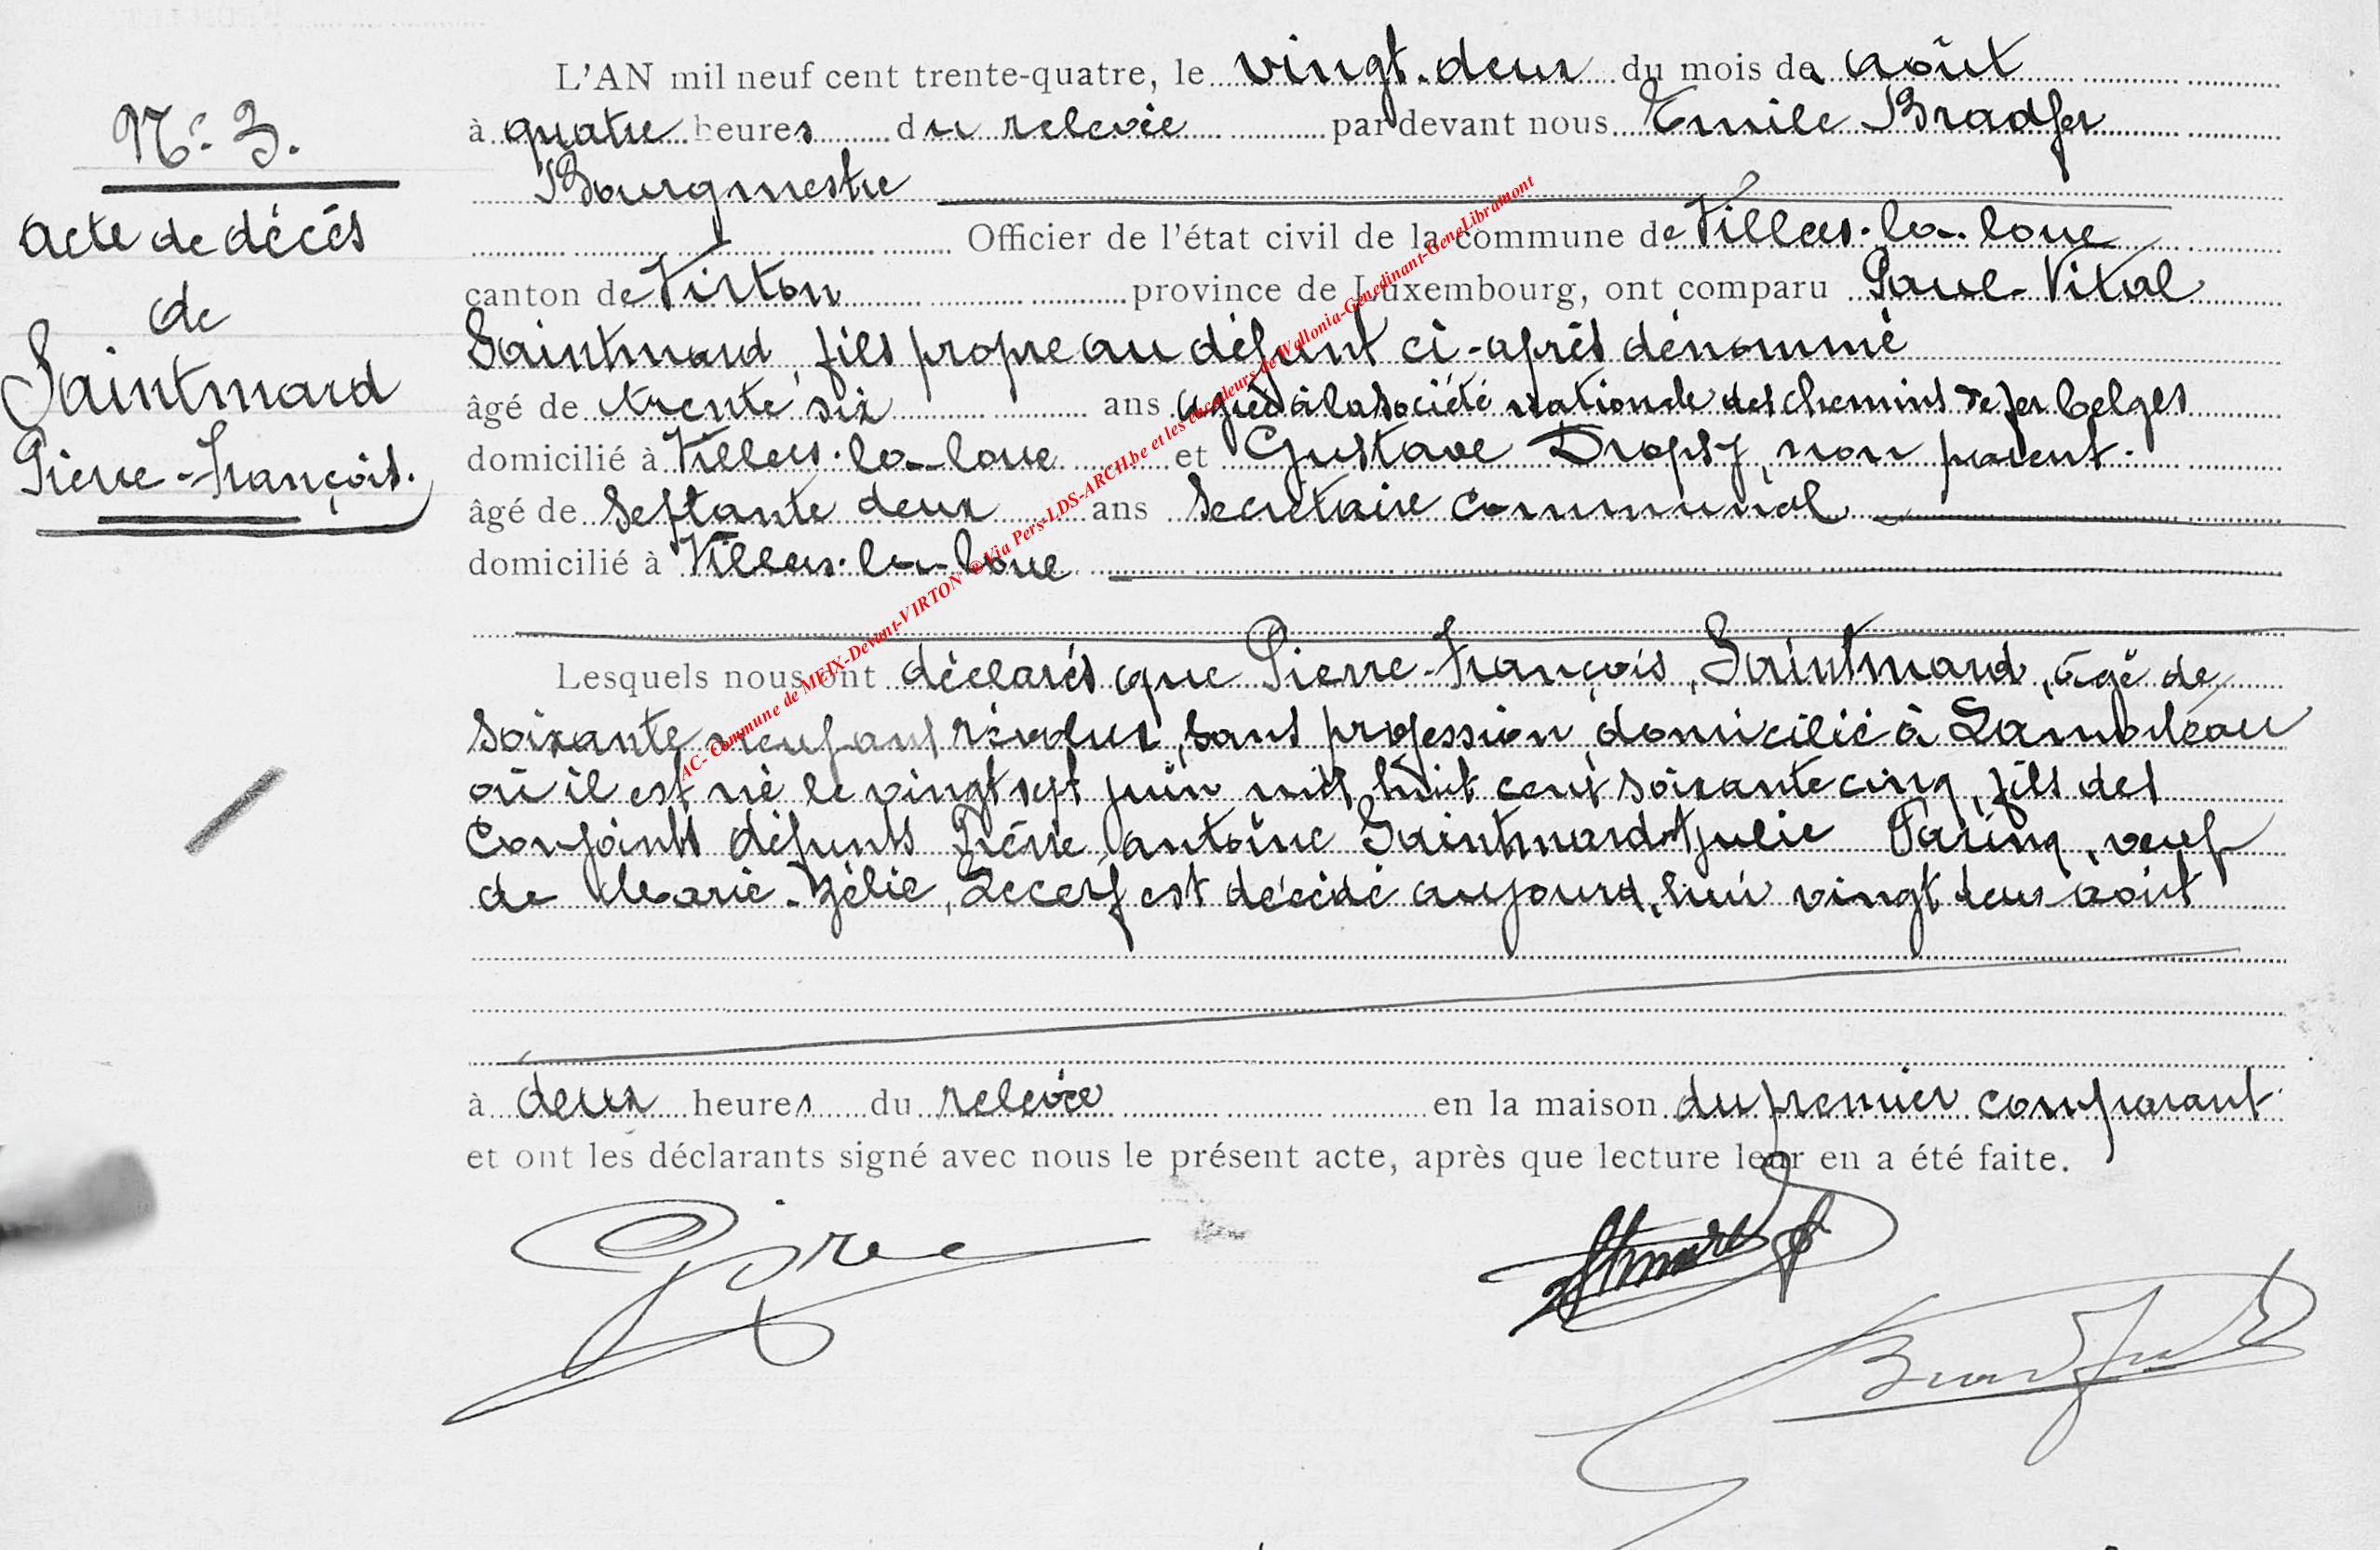 N° 3.
Acte de décès
de
Saintmard
Pierre-François.
L'AN mil neuf cent trente-quatre, le vingt-deux du mois de août
à quatre heures du relevée par devant nous Emile Bradfer
Bourgmestre
Officier de l'état civil de la commune de Villers-la-loue
canton de Virton province de Luxembourg, ont comparu Paul-Vital
Saintmard, fils propre au défunt ci-après dénommé
âgé de trente six ans agréé à la société nationale des chemins de fer belges
domicilié à Villers-la-loue et Gustave Dropsy, non parent.
âgé de Septante deux ans Secrétaire Communal
domicilié à Villers-la-loue
Lesquels nous ont déclarés que Pierre-François, Saintmard, âgé de
soixante neuf ans révolus, sans profession, domicilié à
où il est né le vingt sept juin mil huit cent soixante cinq, fils des
Conjoints défunts Pierre Antoine Saintmard et Julie veuf
de Marie-Zélie, Lecerf est décédé aujourd'hui vingt deux août
à deux heures du relevée en la maison du premier comparant
et ont les déclarants signé avec nous le présent acte, après que lecture leur en a été faite.
Bradfer
AC- Commune de MEIX-Devant-VIRTON © Via Pers-LDS-ARCH.be et les encodeurs de Wallonia-Genedinant-GeneLibramont